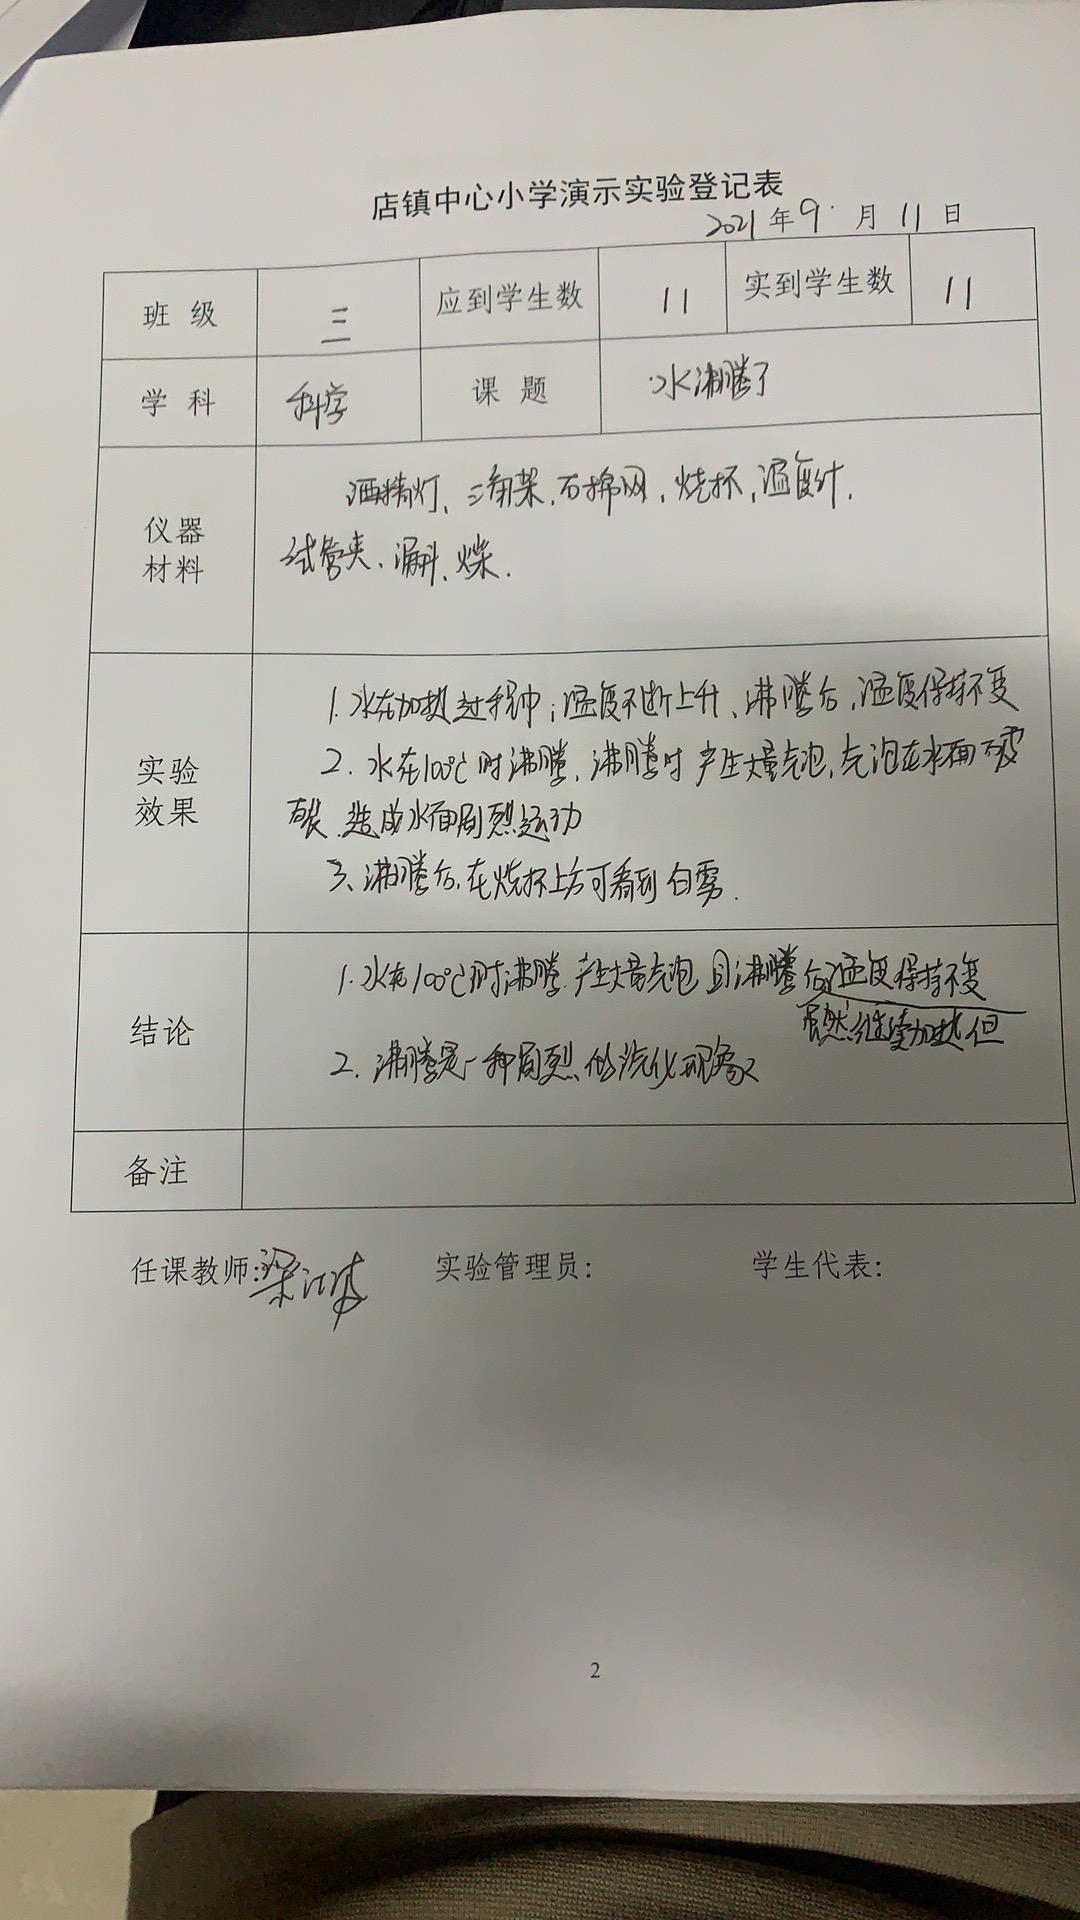 店镇中心小学演示实验登记表
2021年9月11日
班 级 三 应到学生数 11 实到学生数 11
学 科 科学 课 题 水沸腾了
仪器
材料
酒精灯、三角架、石棉网、烧杯、温度计、
试管夹、漏斗、火柴.
实验
效果
1. 水在加热过程中,温度不断上升、沸腾后,温度保持不变
2. 水在100℃时沸腾,沸腾时产生大量气泡,气泡在水面破
裂,造成水面剧烈运动
3、沸腾后,在烧杯上方可看到白雾.
结论
1. 水在100℃时沸腾,产生大量气泡,且沸腾后温度保持不变
虽然继续加热但
2. 沸腾是一种剧烈的汽化现象
备注
任课教师: 实验管理员: 学生代表:
2